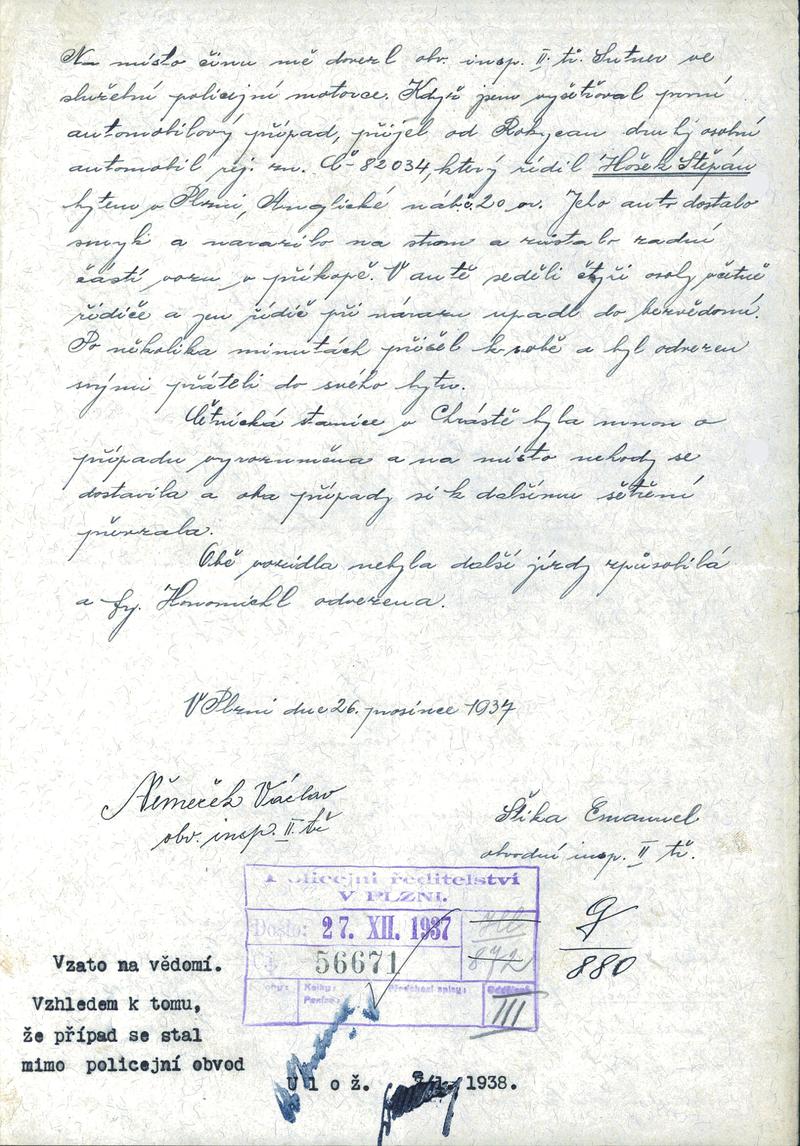 Na místo činu mě dovezl obv. insp. II. tř. Sutner ve
služební policejní motorce. Když jsem vyšetřoval první
automobilový případ, přijel od Rokycan druhý osobní
automobil rej. zn. Č-82034, který řídil Hošek Štěpán
bytem v Plzni, Anglické náb.č.20 . Jeho auto dostalo
smyk a narazilo na strom a zůstalo zadní
částí vozu v příkopě. V autě seděli čtyři osoby včetně
řidiče a jen řidič při nárazu upadl do bezvědomí.
Po několika minutách přišel k sobě a byl odvezen
svými přáteli do svého bytu.
Četnická stanice v Chrástě byla mnou o
případu vyrozuměna a na místo nehody se
dostavila a oba případy si k dalšímu šetření
převzala.
Obě vozidla nebyla další jízdy způsobilá
a fy. Howomichl odvezena.
V Plzni dne 26. prosince 1937
Němeček Václav
obv. insp. II. tř
Šika Emanuel
obvodní insp. II tř.
Policejní ředitelství
V PLZNI.
Došlo: 27. XII. 1937
Čj. 56671
872
Kolky:
Předchozí spisy:
Oddělení
Peníze:
III
9
880
Vzato na vědomí.
Vzhledem k tomu,
že případ se stal
mimo policejní obvod
Ulož. 1938.